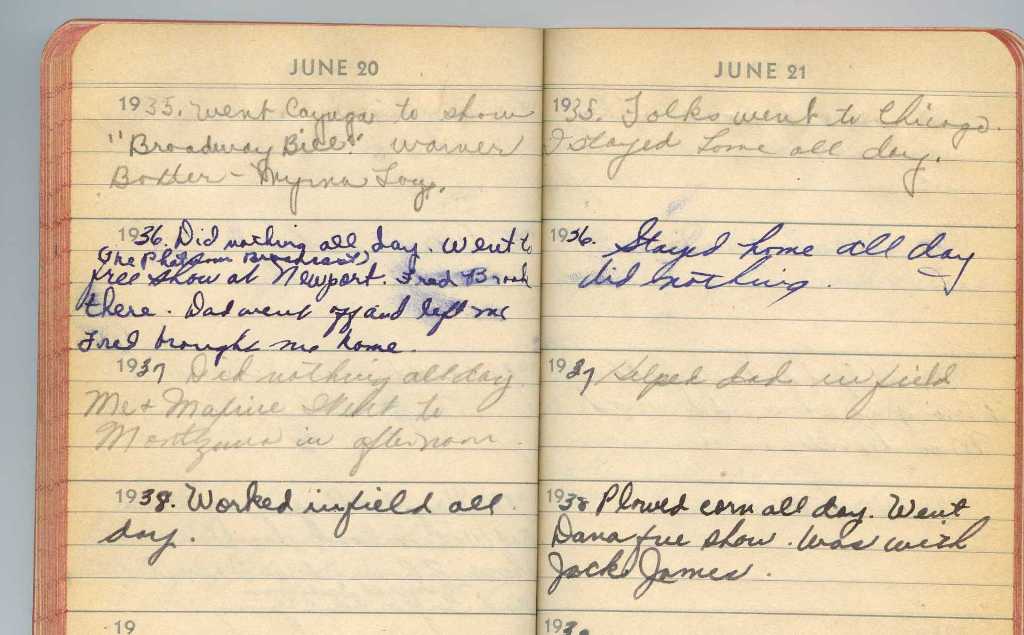 JUNE 20
1935. Went Cayuga to show
"Broadway Bill." Warner
Baxter - Myrna Loy.
1936. Did nothing all day. Went to
(The Phantom Broadcast)
free show at Newport. Fred Brook
there. Dad went off and left me
Fred brought me home.
1937 Did nothing all day
Me + Maxine went to
Montezuma in afternoon.
1938. Worked in field all
day.
19
JUNE 21
1935. Folks went to Chicago.
I stayed home all day.
1936. Stayed home all day
did nothing.
1937 Helped dad in field
1938 Plowed corn all day. Went
Dana free show. Was with
Jack James.
193